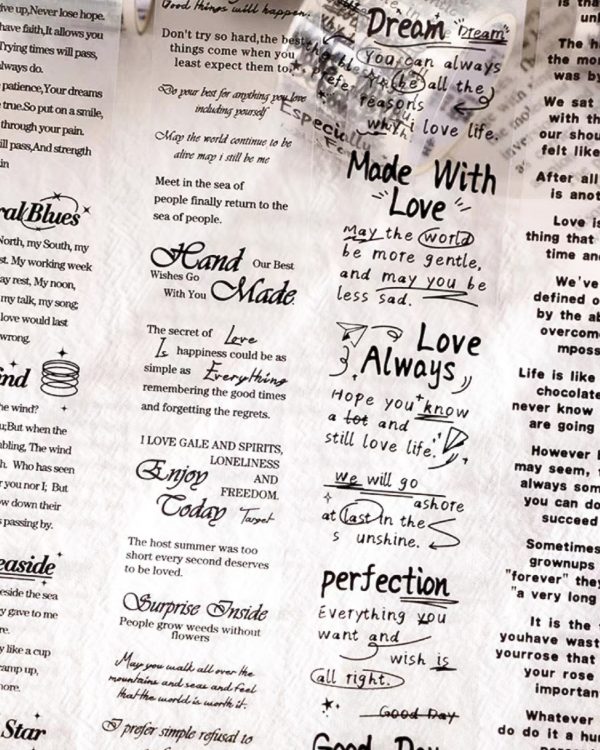 give up, Never lose hope.
have faith, It allows you
Trying times will pass,
always do.
patience, Your dreams
true. So put on a smile,
through your pain.
ill pass, And strength
Blues
North, my South, my
st. My working week
ay rest, My noon,
my talk, my song;
love would last
wrong.
the wind?
u; But when the
bling, The wind
h. Who has seen
r you nor I; But
ow down their
s passing by.
easide
beside the sea
y gave to me
re.
y like a cup
came up,
more.
Star
Good things will happen.
Don't try so hard, the best
things come when you
least expect them to.
Do your best for anything you love
including yourself
May the world continue to be
alive may i still be me
Meet in the sea of
people finally return to the
sea of people.
Hand Our Best
Wishes Go
With You Made
The secret of Love
Is happiness could be as
simple as Everything
remembering the good times
and forgetting the regrets.
I LOVE GALE AND SPIRITS,
LONELINESS
Enjoy AND
FREEDOM.
Today Target
The host summer was too
short every second deserves
to be loved.
Surprise Inside
People grow weeds without
flowers
May you walk all over the
mountains and seas and feel
that the world is worth it.
I prefer simple refusal to
Dream "Dream"
You can always
be all the
reasons
why i love life.
Especially
Made With
Love
May the world
be more gentle,
and may you be
less sad.
Love
Always
Hope you know
a lot and
still love life.
We will go
ashore
at last in the
s unshine.
perfection
Everything you
want and
wish is
all right.
Good Day
Good Day
is tha
The h
the mo
was by
We sat
with th
our shou
felt like
After all
is anot
Love is
thing that
time and
We've
defined o
by the ab
overcome
mposs
Life is like
chocolate
never know
are going
However
may seem, t
always som
you can do
succeed
Sometimes
grownups
"forever" they
"a very long
It is the
youhave wast
yourrose that
your rose
importan
Whatever
do do it a hun